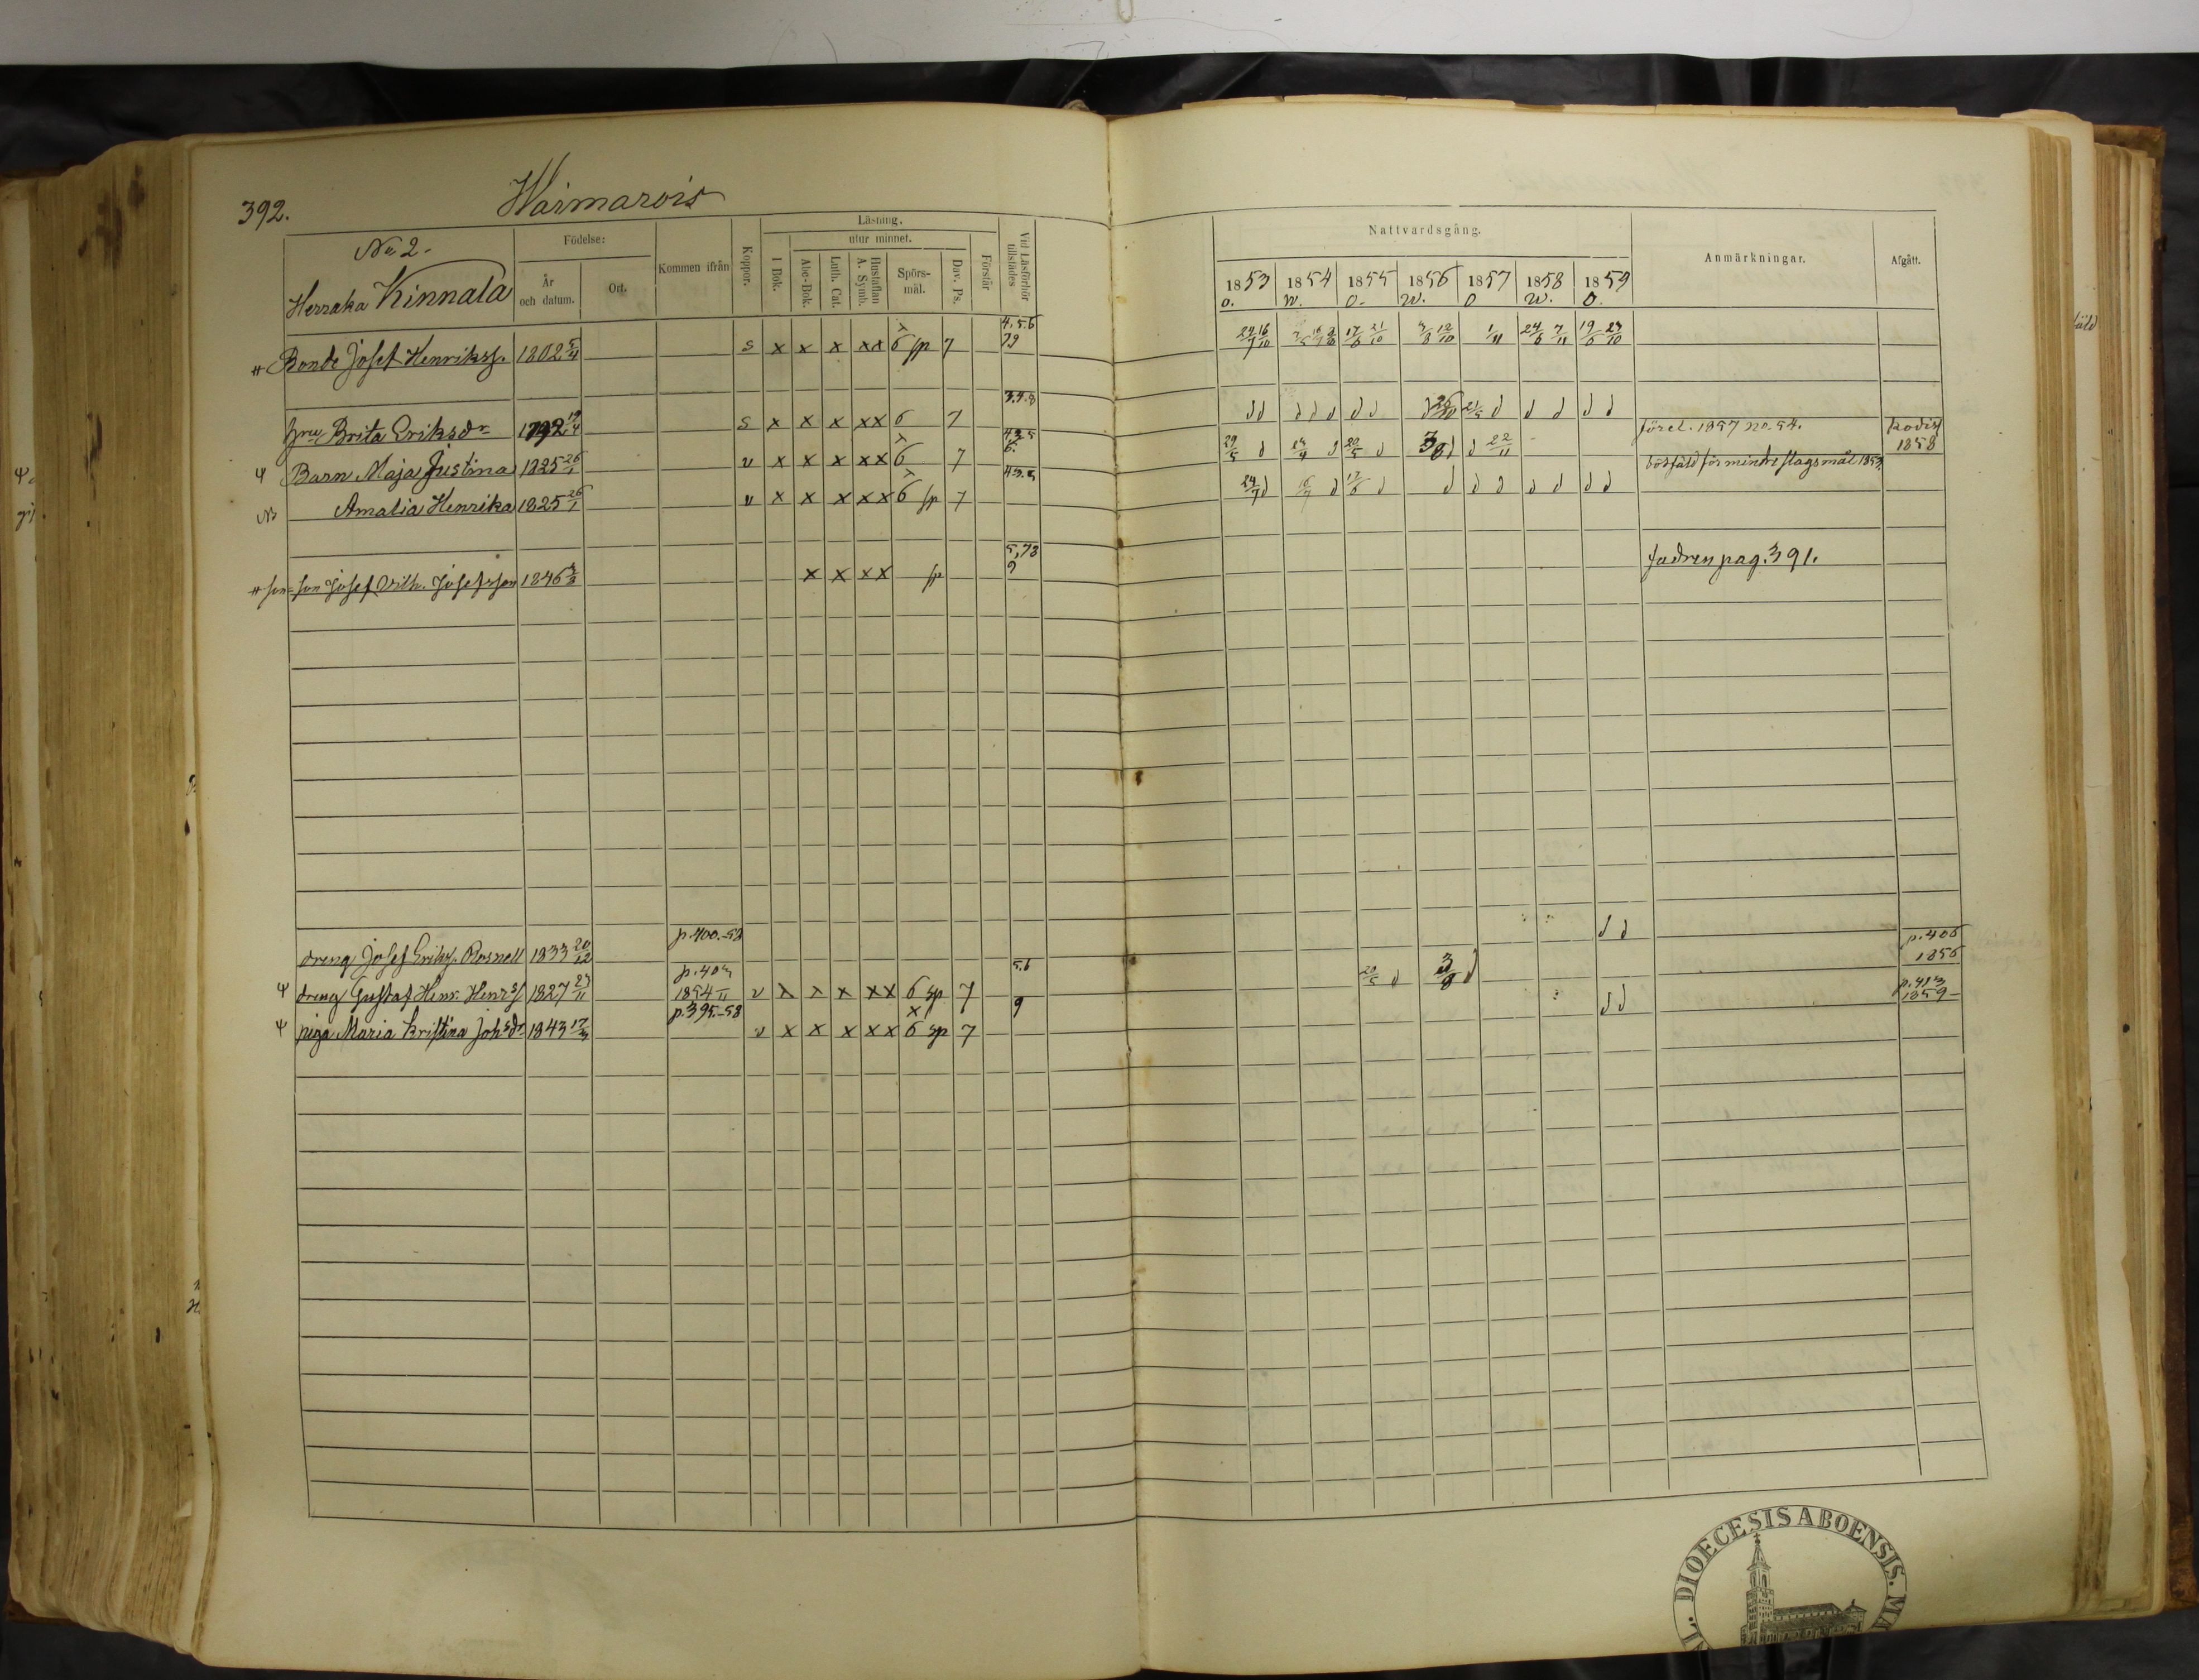 392.
Waimarois
No 2.
Herraka Kinnala
Födelse:
År och datum.
Ort.
Kommen ifrån
Koppor.
Läsning.
I Bok.
utur minnet.
Abc-Bok.
Luth. Cat.
Hustaflan A. Symb.
Spörsmål.
Dav. Ps.
Förstår
Vid Läsförhör tillstädes
Nattvardsgång.
1853 1854 1855 1856 1857 1858 1859
o. w. o. w. o w. o.
Anmärkningar.
Afgått.
Bonde Josef Henrikss. 1802 5/4 s x x x xx 6 sp 7 4,5.6 79
hru Brita Eriksdr 1792 19/4 s x x x xx 6 7 3.4.8
Barn Maja Justina 1825 26/1 v x x x xx 6 7 förel. 1857 no. 54. Kodisj 1858
Amalia Henrika 1825 26/1 v x x x xx 6 sp 7 4.3.5 bötfäld för mindre slagsmål 1853.
son-son Josef Vilh. Josefsson 1846 x x xx sp 5,78 9 fadren pag. 391.
dreng Josef Eriks. Rosnell 1833 20/12 p. 400.-58 d d
dreng Gustaf Henr. Henrs 1827 27/11 1854 v x x x xx 6 sp 7 5.6 20/5 d 3/8 d p. 406 1856
piga Maria Kristina Johsdr 1843 17/3 p. 395.-58 v x x x xx 6 sp 7 9 d d p. 413 1859-
DIOECESIS ABOENSIS.